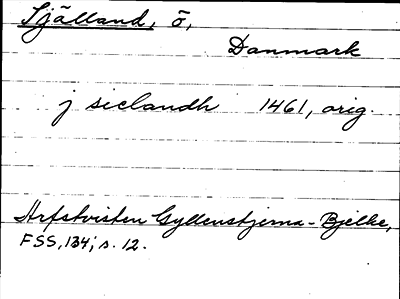 Själland, ö,
Danmark
j sielandh 1461, orig.
Arfstvisten Gyllenstjerna-Bjelke,
FSS, 134, s. 12.